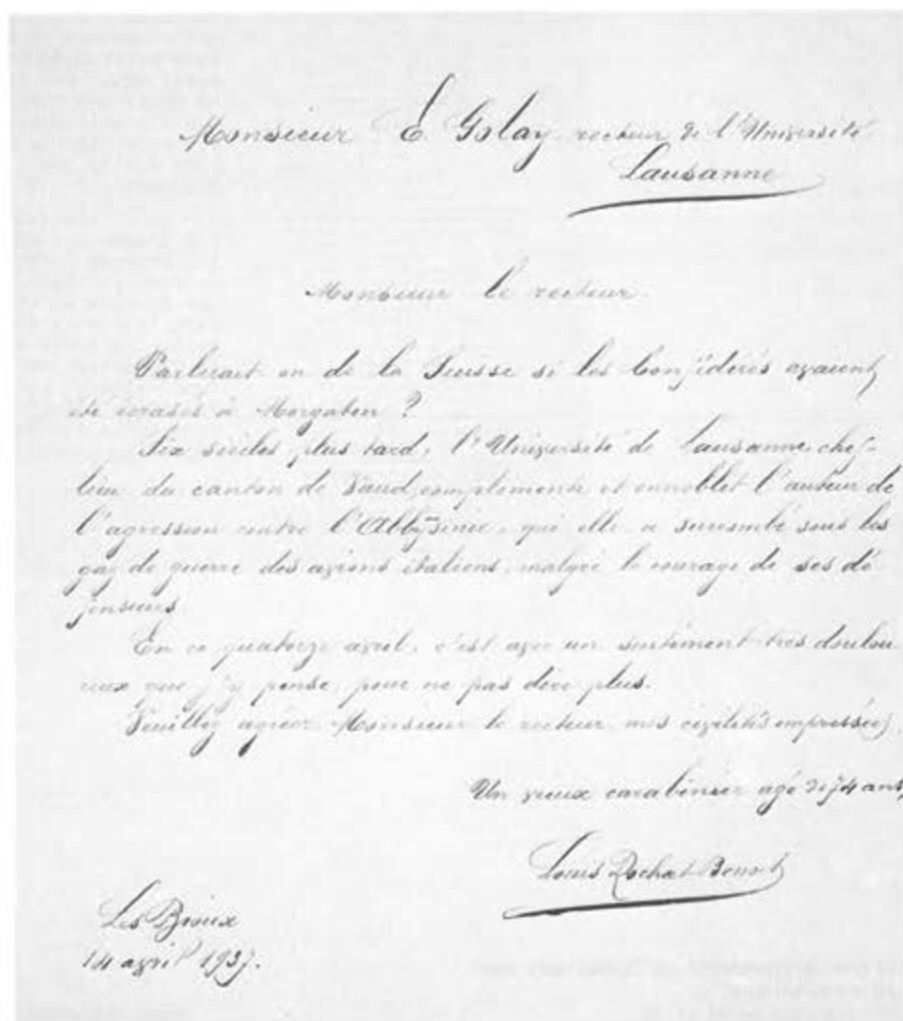 Monsieur E. Golay, recteur de l'Université
Lausanne
Monsieur le recteur.
Parlerait on de la Suisse si les Confédérés avaient
été écrasés à Morgaten ?
Six siècles plus tard, l'Université de Lausanne, chef-
lieu du canton de Vaud, complimente et ennoblit l'auteur de
l'agression contre l'Abbyssinie, qui elle a succombé sous les
gaz de guerre des avions italiens, malgré le courage de ses dé
fenseurs.
En ce quatorze avril, c'est avec un sentiment très doulou
reux que j'y pense, pour ne pas dire plus.
Veuillez agréer, Monsieur le recteur, mes civilités empressées.
Un vieux carabinier agé de 74 ans,
Louis Rochat-Benoit
Les Bioux
14 avril 1937.